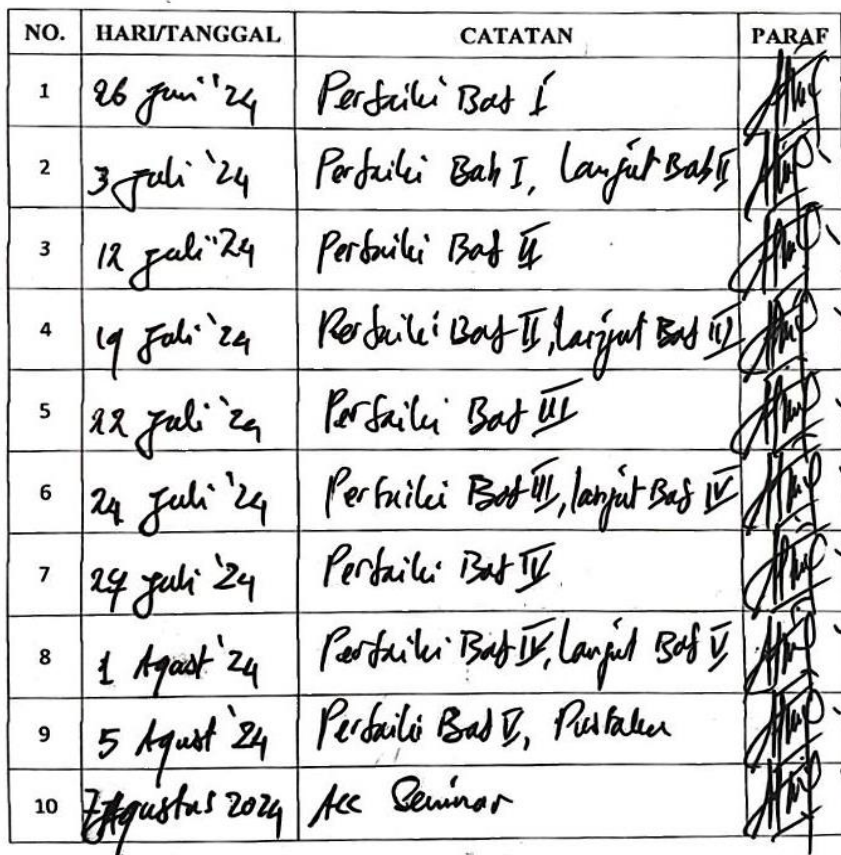 NO. HARI/TANGGAL CATATAN PARAF
1 26 Juni '24 Perbaiki Bab I
2 3 Juli '24 Perbaiki Bab I, lanjut Bab II
3 12 Juli '24 Perbaiki Bab II
4 19 Juli '24 Perbaiki Bab II, lanjut Bab III
5 22 Juli '24 Perbaiki Bab III
6 24 Juli '24 Perbaiki Bab III, lanjut Bab IV
7 Juli '24 Perbaiki Bab IV
8 1 Agust '24 Perbaiki Bab IV, lanjut Bab V
9 5 Agust '24 Perbaiki Bab V, Pustaka
10 7 Agustus 2024 Acc Seminar